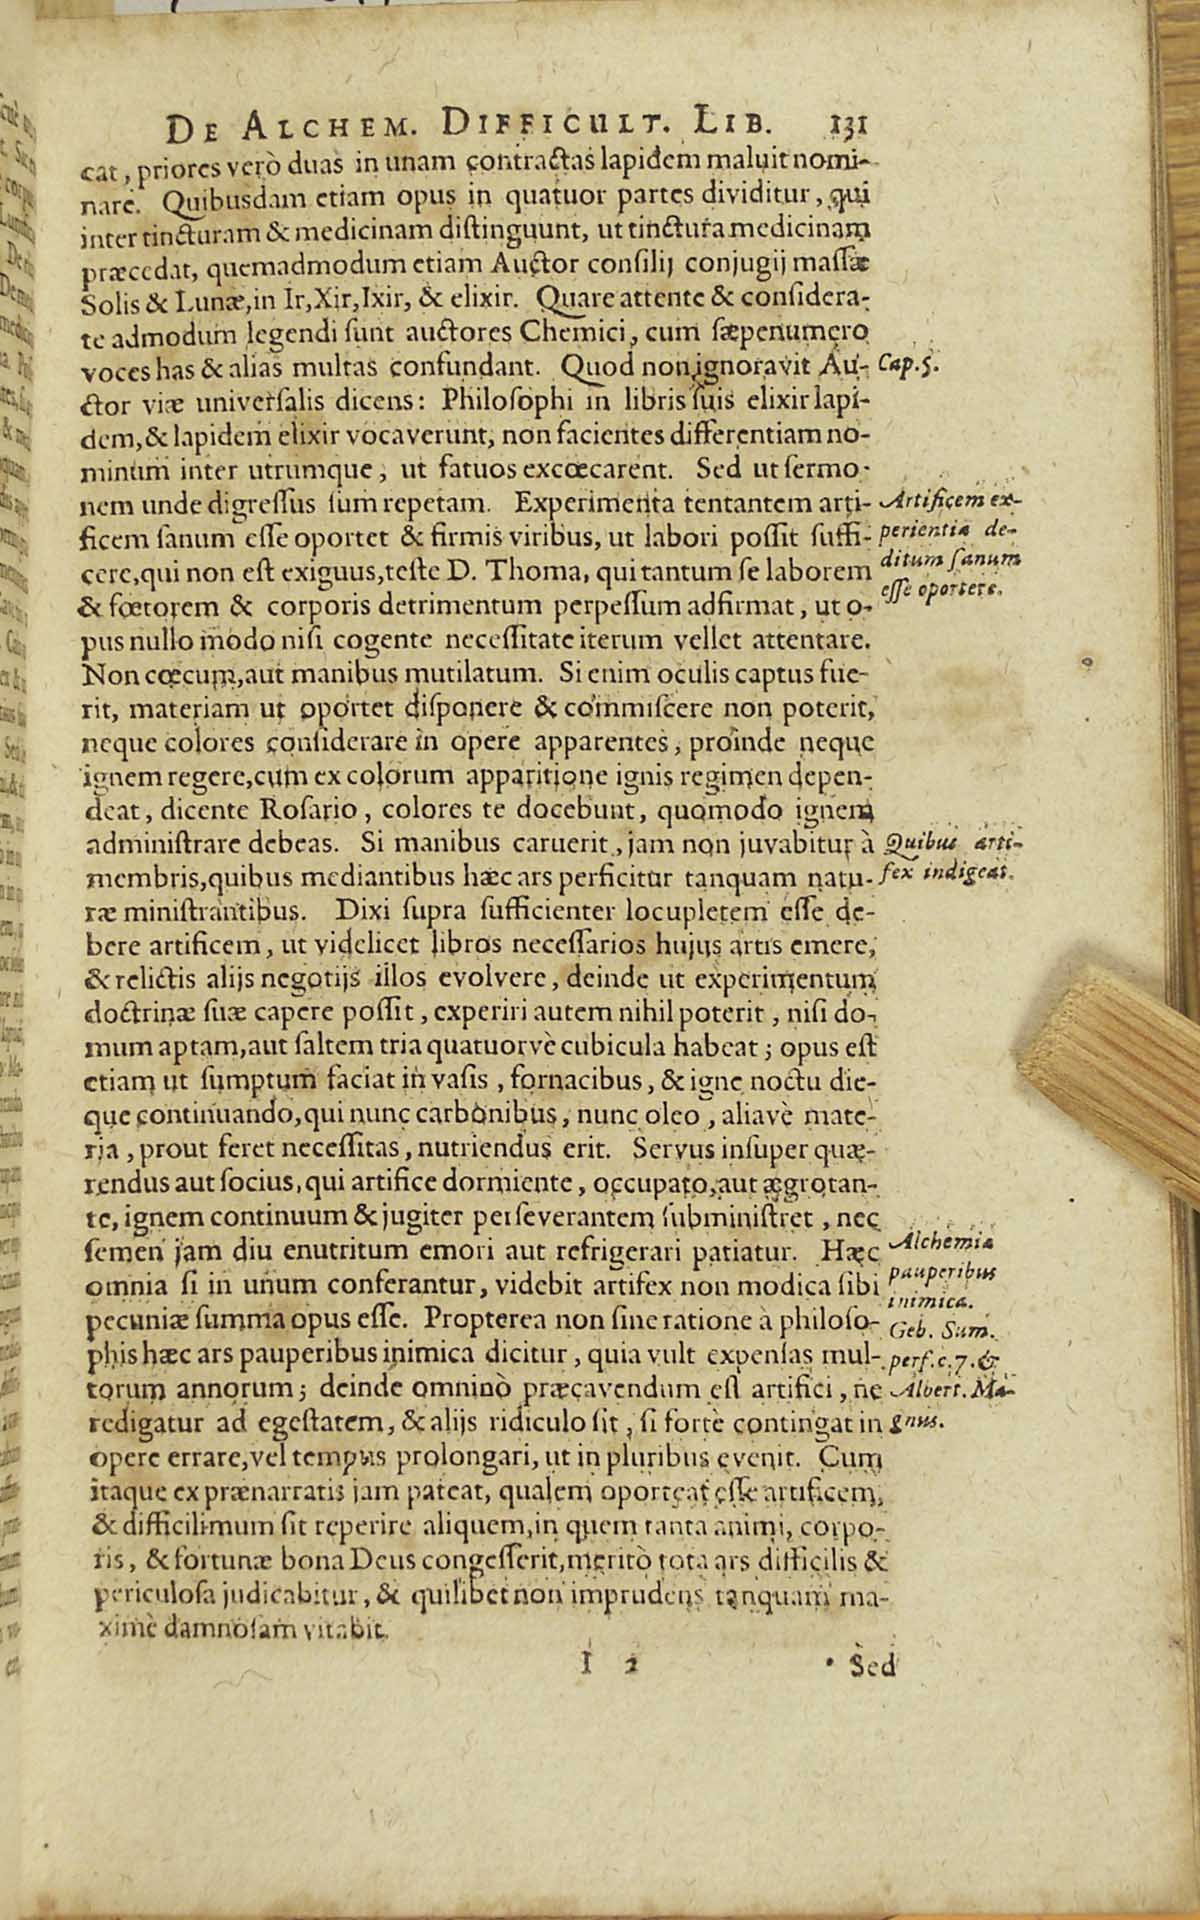 DE ALCHEM. DIFFICULT. LIB. 131
cat, priores verò duas in unam contractas lapidem maluit nomi-
nare. Quibusdam etiam opus in quatuor partes dividitur, qui
inter tincturam & medicinam distinguunt, ut tinctura medicinam
præcedat, quemadmodum etiam Auctor consilij conjugij massæ
Solis & Lunæ, in Ir, Xir, Ixir, & elixir. Quare attente & considera-
te admodum legendi sunt auctores Chemici, cum sæpenumero
voces has & alias multas confundant. Quod non ignoravit Au-
Cap. 5.
ctor viæ universalis dicens: Philosophi in libris suis elixir lapi-
dem, & lapidem elixir vocaverunt, non facientes differentiam no-
minum inter utrumque, ut fatuos excœcarent. Sed ut sermo-
nem unde digressus sum repetam. Experimenta tentantem arti-
ficem sanum esse oportet & firmis viribus, ut labori possit suffi-
cere, qui non est exiguus, teste D. Thoma, qui tantum se laborem
& fœtorem & corporis detrimentum perpessum adfirmat, ut o-
Artificem ex-
perientia de-
ditum sanum
esse oportere.
pus nullo modo nisi cogente necessitate iterum vellet attentare.
Non cœcum, aut manibus mutilatum. Si enim oculis captus fue-
rit, materiam ut oportet disponere & commiscere non poterit,
neque colores considerare in opere apparentes, proinde neque
ignem regere, cum ex colorum apparitione ignis regimen depen-
deat, dicente Rosario, colores te docebunt, quomodo ignem
administrare debeas. Si manibus caruerit, jam non juvabitur à
membris, quibus mediantibus hæc ars perficitur tanquam natu-
Quibus arti-
fex indigeat.
ræ ministrantibus. Dixi supra sufficienter locupletem esse de-
bere artificem, ut videlicet libros necessarios hujus artis emere,
& relictis alijs negotijs illos evolvere, deinde ut experimentum
doctrinæ suæ capere possit, experiri autem nihil poterit, nisi do-
mum aptam, aut saltem tria quatuorvè cubicula habeat; opus est
etiam ut sumptum faciat in vasis, fornacibus, & igne noctu die-
que continuando, qui nunc carbonibus, nunc oleo, aliavè mate-
ria, prout feret necessitas, nutriendus erit. Servus insuper quæ-
rendus aut socius, qui artifice dormiente, occupato, aut ægrotan-
te, ignem continuum & jugiter perseverantem subministret, nec
semen jam diu enutritum emori aut refrigerari patiatur. Hæc
omnia si in unum conferantur, videbit artifex non modica sibi
pecuniæ summa opus esse. Propterea non sine ratione à philoso-
phis hæc ars pauperibus inimica dicitur, quia vult expensas mul-
torum annorum; deinde omninò præcavendum est artifici, ne
redigatur ad egestatem, & alijs ridiculo sit, si fortè contingat in
Alchemia
pauperibus
inimica.
Geb. Sum.
perf. c. 7. &
Albert. Ma-
gnus.
opere errare, vel tempus prolongari, ut in pluribus evenit. Cum
itaque ex prænarratis jam pateat, qualem oporteat esse artificem,
& difficilimum sit reperire aliquem, in quem tanta animi, corpo-
ris, & fortunæ bona Deus congesserit, meritò tota ars difficilis &
periculosa judicabitur, & quilibet non imprudens tanquam ma-
ximè damnosam vitabit.
I 2 Sed